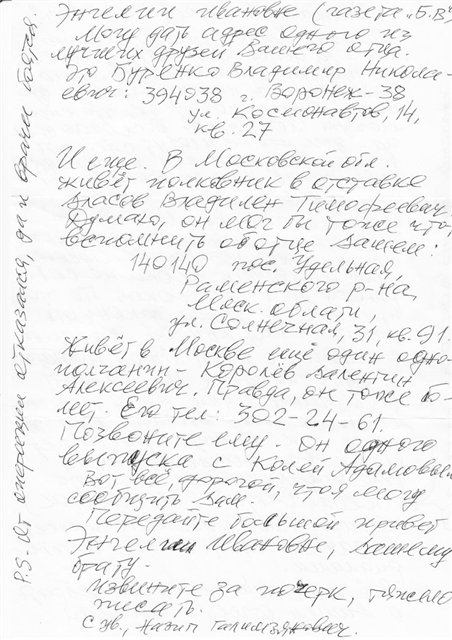 Энгелии Ивановне (газета „Б.В")
Могу дать адрес одного из
лучших друзей Вашего отца.
Это Буренко Владимир Никола-
евич: 394038 г. Воронеж-38
ул. Космонавтов, 14,
кв. 27
И еще. В Московской обл.
живёт полковник в отставке
Власов Владилен Тимофеевич.
Думаю, он мог бы тоже что,
вспомнить об отце Вашем:
140140 пос. Удельная,
Раменского р-на,
Моск. области,
ул. Солнечная, 31, кв. 91.
Живёт в Москве ещё один одно-
полчанин - Королёв Валентин
Алексеевич. Правда, он тоже бо-
леет. Его тел: 302-24-61.
Позвоните ему. Он одного
выпуска с Колей Адамовым
Вот всё, дорогой, что я могу
сообщить Вам.
Передайте большой привет
Энгелии Ивановне, Вашему
брату.
Извините за почерк, тяжело
писать.
С ув., Назип Галимзянович.
P.S. От операции отказался, да и врачи боятся.